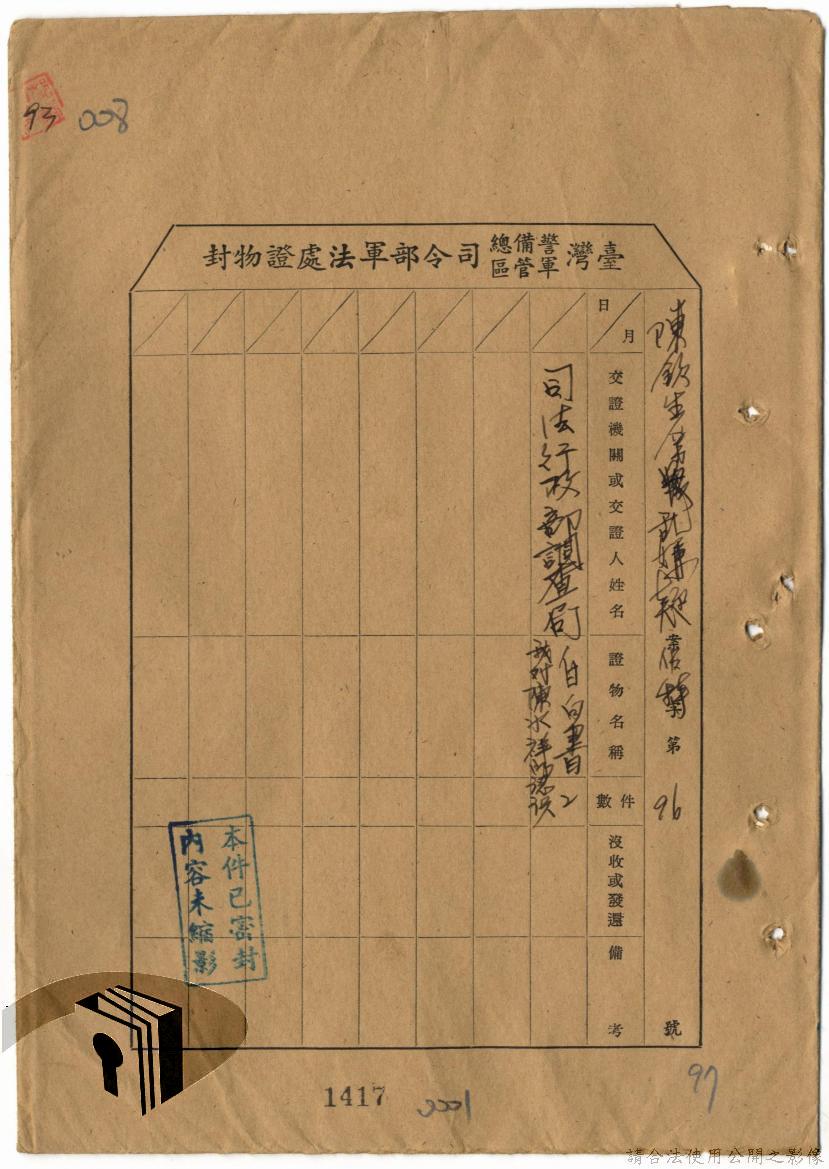 93 008
臺灣警備總司令部軍管區軍法處證物封
陳欽生
第 96 號
月 日
交證機關或交證人姓名
證物名稱
件數
沒收或發還
備考
司法行政部調查局
自白書 2
我對陳水祥的認識
本件已密封
內容未縮影
97
1417 0001
請合法使用公開之影像